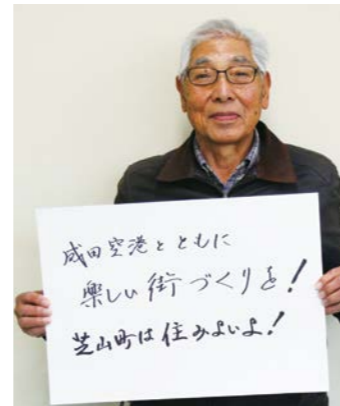 成田空港とともに
楽しい街づくりを!
芝山町は住みよいよ!